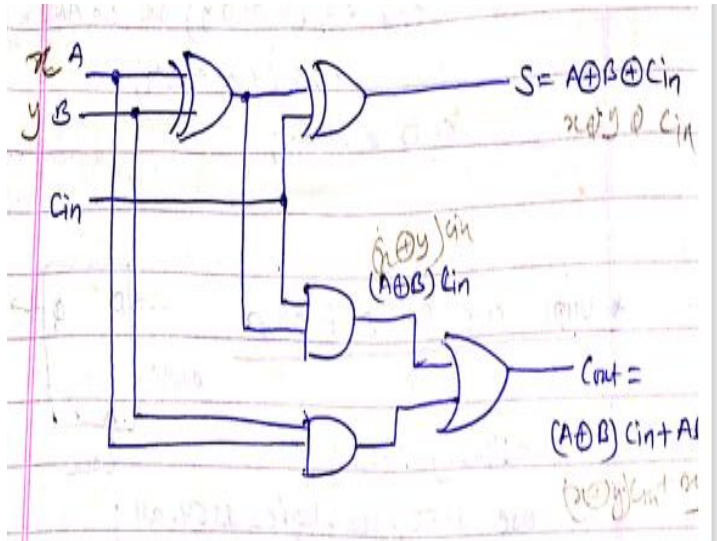 x A
y B
Cin
S = A⊕B⊕Cin
x⊕y⊕Cin
(x⊕y)Cin
(A⊕B)Cin
Cout =
(A⊕B) Cin + A
(x⊕y)Cin +